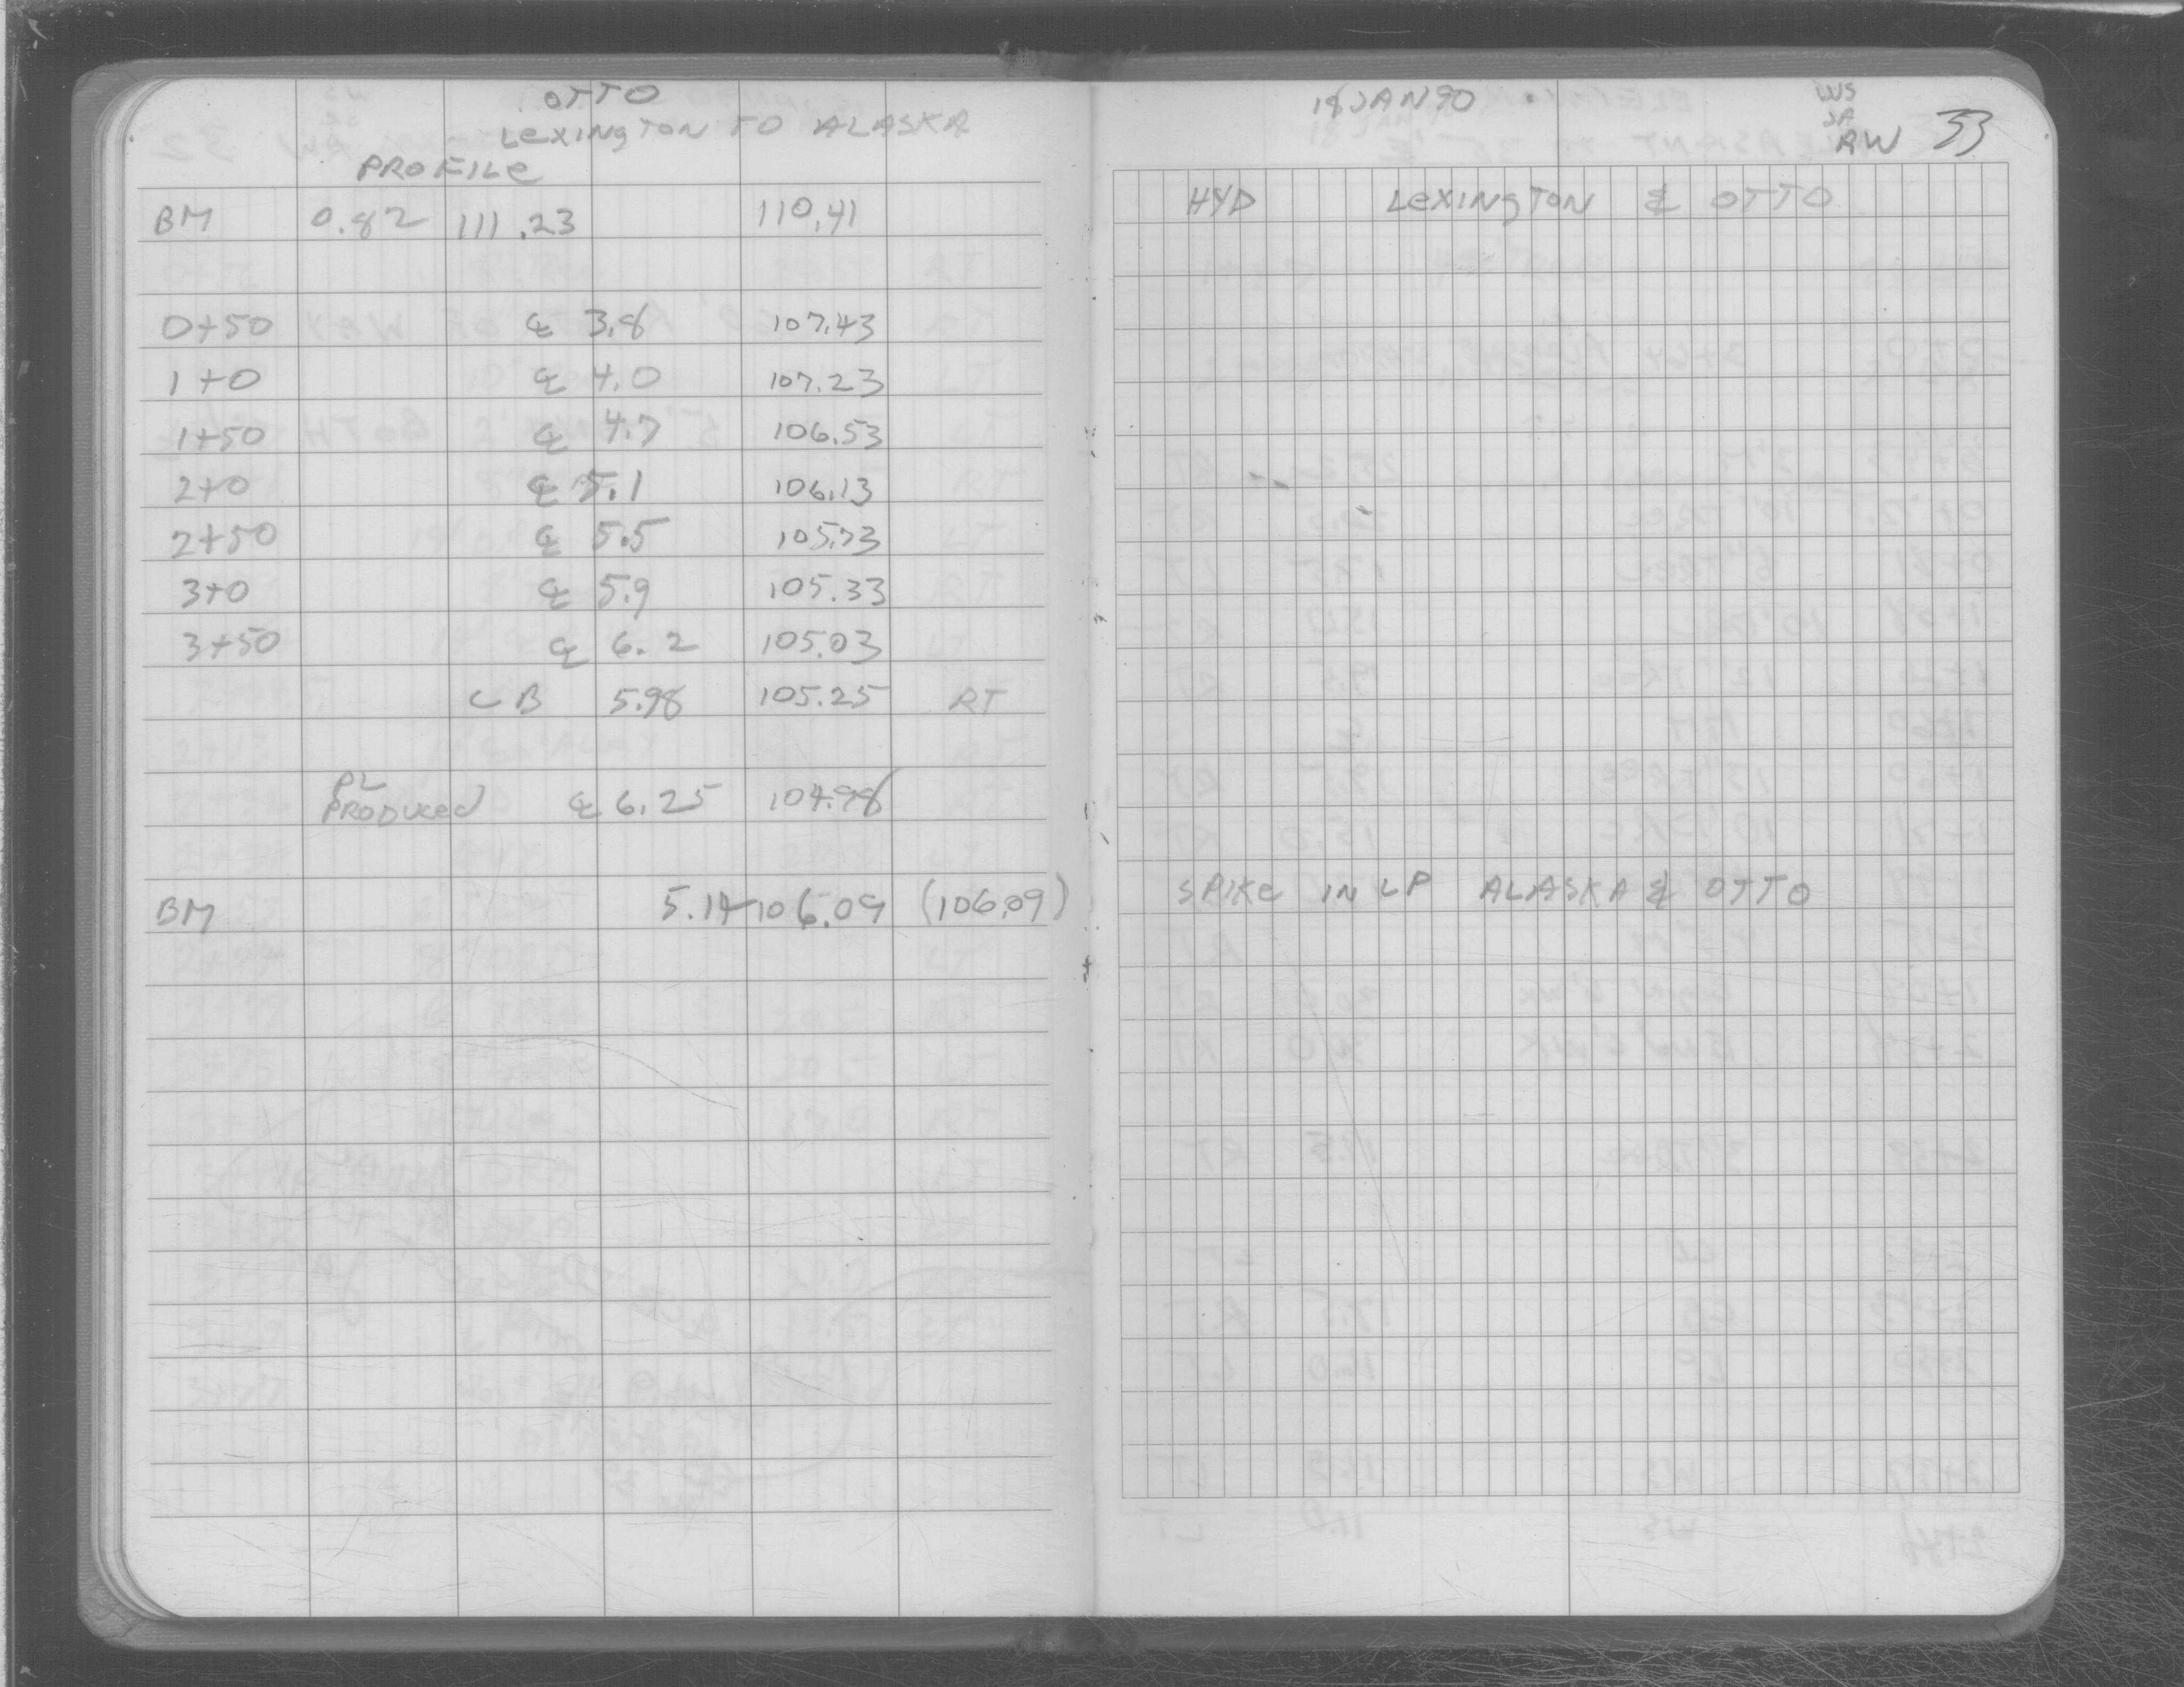 OTTO
LEXINGTON TO ALASKA
PROFILE
BM 0.82 111.23 110.41
0+50 ℄ 3.8 107.43
1+0 ℄ 4.0 107.23
1+50 ℄ 4.7 106.53
2+0 ℄ 5.1 106.13
2+50 ℄ 5.5 105.73
3+0 ℄ 5.9 105.33
3+50 ℄ 6.2 105.03
CB 5.98 105.25 RT
PL
PRODUCED ℄ 6.25 104.98
BM 5.14 106.09 (106.09)
18 JAN 90
WS
JA
RW 33
HYD LEXINGTON & OTTO
SPIKE IN LP ALASKA & OTTO